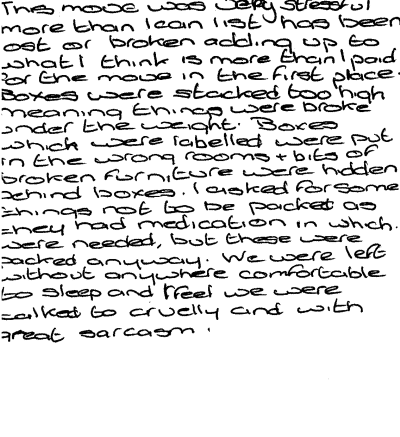 This move was very stressful
more than I can list has been
lost or broken adding up to
what I think is more than I paid
for the move in the first place.
Boxes were stacked too high
meaning things were broke
under the weight. Boxes
which were labelled were put
in the wrong rooms + bits of
broken furniture were hidden
behind boxes. I asked for some
things not to be packed as
they had medication in which
were needed, but these were
packed anyway. We were left
without anywhere comfortable
to sleep and I feel we were
talked to cruelly and with
great sarcasm.